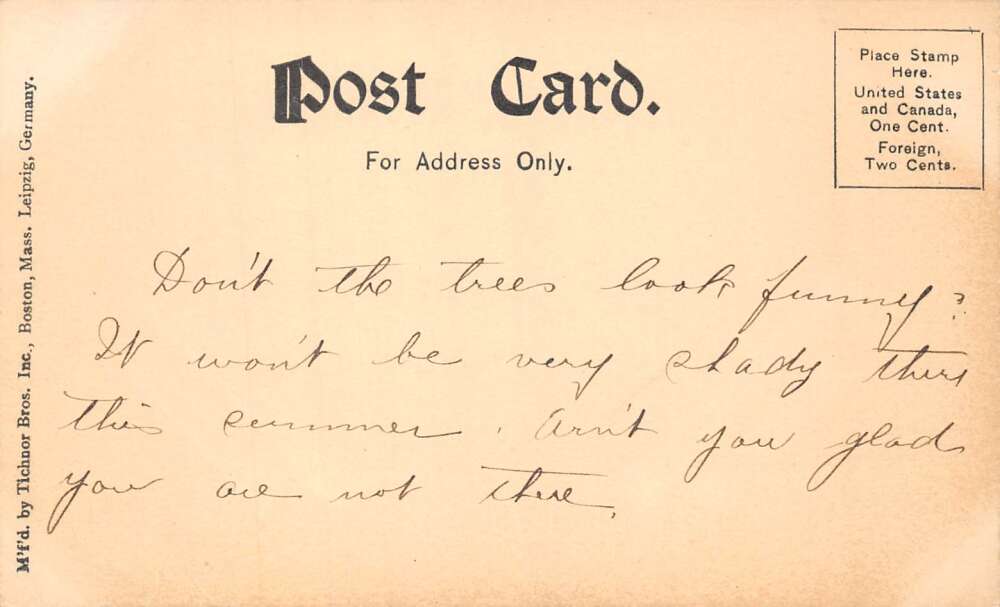 Post Card.
For Address Only.
Place Stamp
Here.
United States
and Canada,
One Cent.
Foreign,
Two Cents.
M'f'd. by Tichnor Bros. Inc., Boston, Mass. Leipzig, Germany.
Don't the trees look funny?
It won't be very shady there
this summer. Arn't you glad
you are not there.